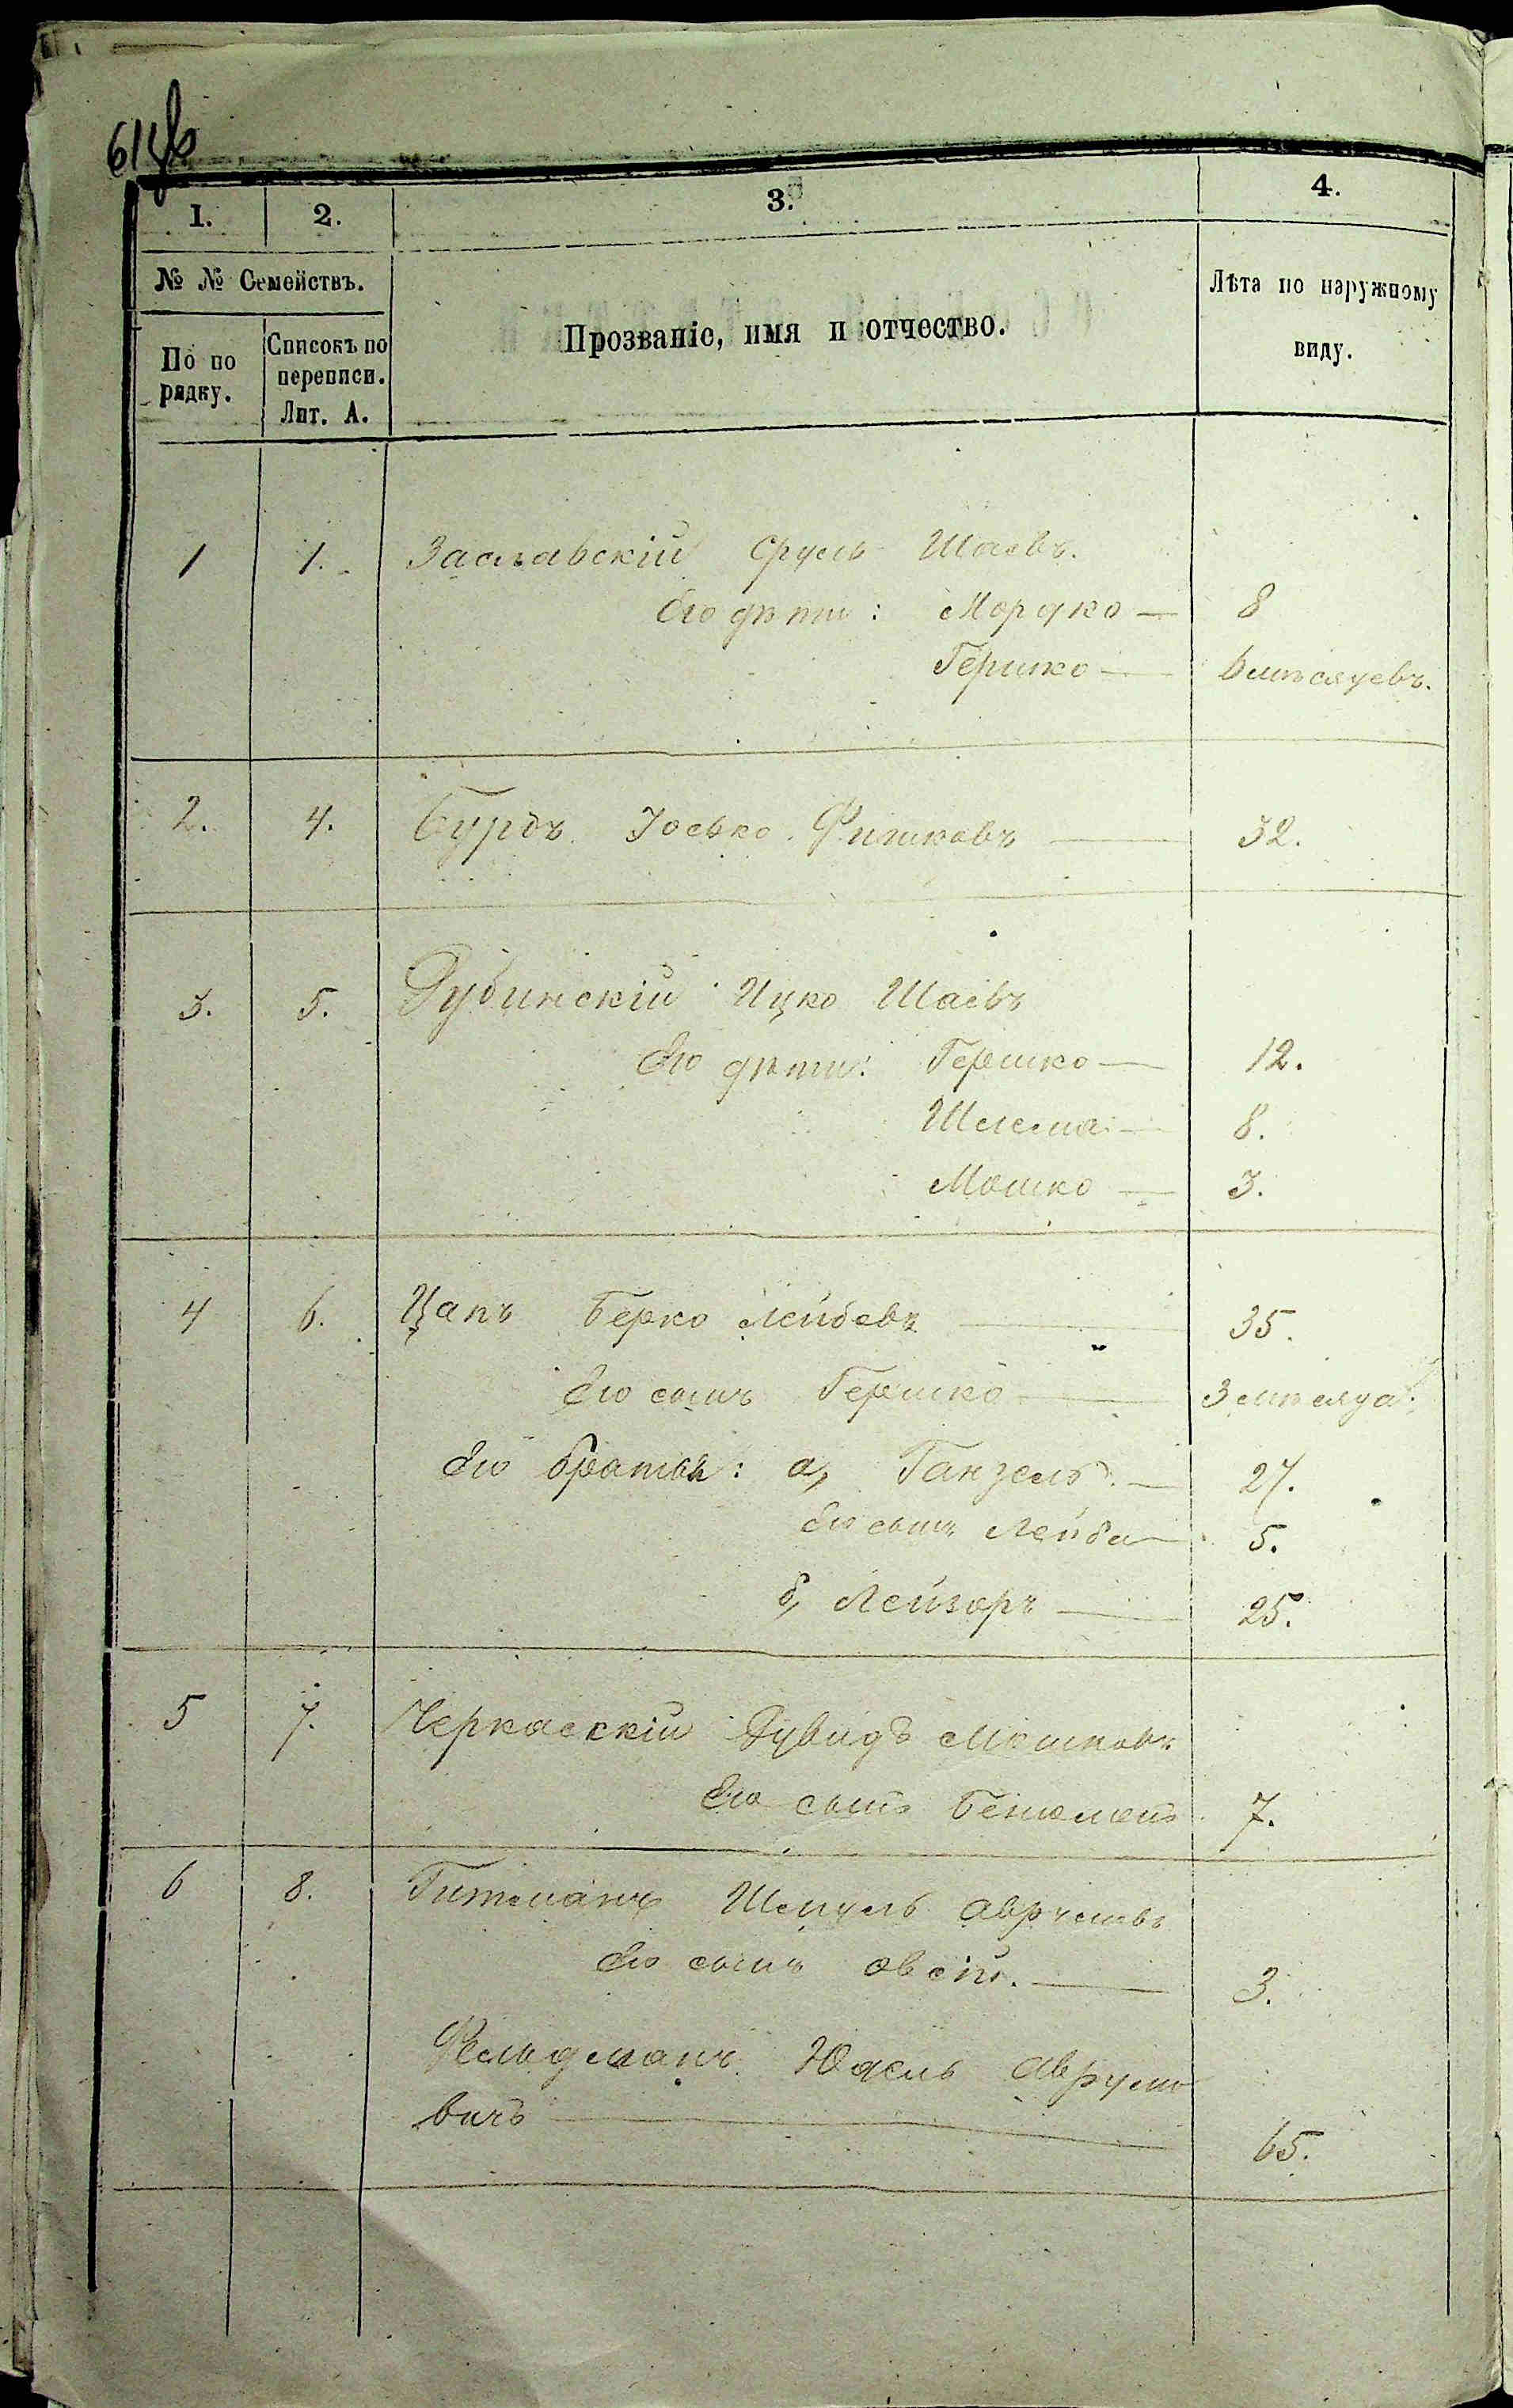 1. 2. 3. 4.
№ № Семействъ. Прозваніе, имя и отчество. Лѣта по наружному виду.
По по рядку. Списокъ по переписи. Лит. А.
1 1. Заславскій Сруль Шаевъ.
Его дѣти: Мордко — 8
Гершко — 6 мѣсяцевъ.
2. 4. Бурдъ Іосько Фишковъ — 32.
3. 5. Дубинскій Ицко Шаевъ
Его дѣти: Гершко — 12.
Шлема — 8.
Мошко — 3.
4 6. Цапъ Берко Лейбовъ — 35.
Его сынъ Гершко — 3 мѣсяца.
Его братья: а, Ганзель — 27.
Его сынъ Лейба — 5.
б, Лейзоръ — 25.
5 7. Черкаскій Дувидъ Мошковъ
Его сынъ Бенюменъ 7.
6 8. Гитманъ Шмуль Аврумовъ
Его сынъ Овсій. — 3.
Фельдманъ Юдель Аврумо
вичъ — 65.